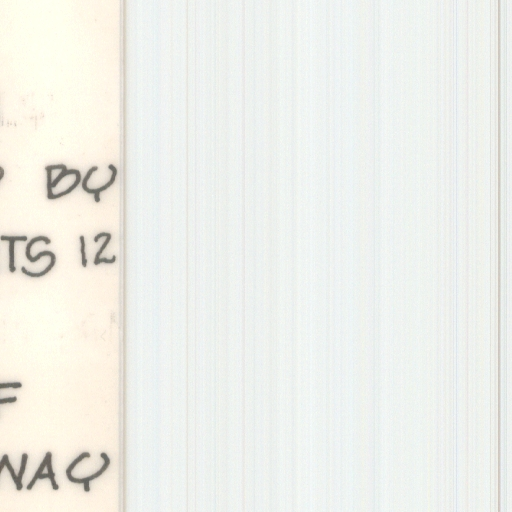 BY
TS 12
F
WAY